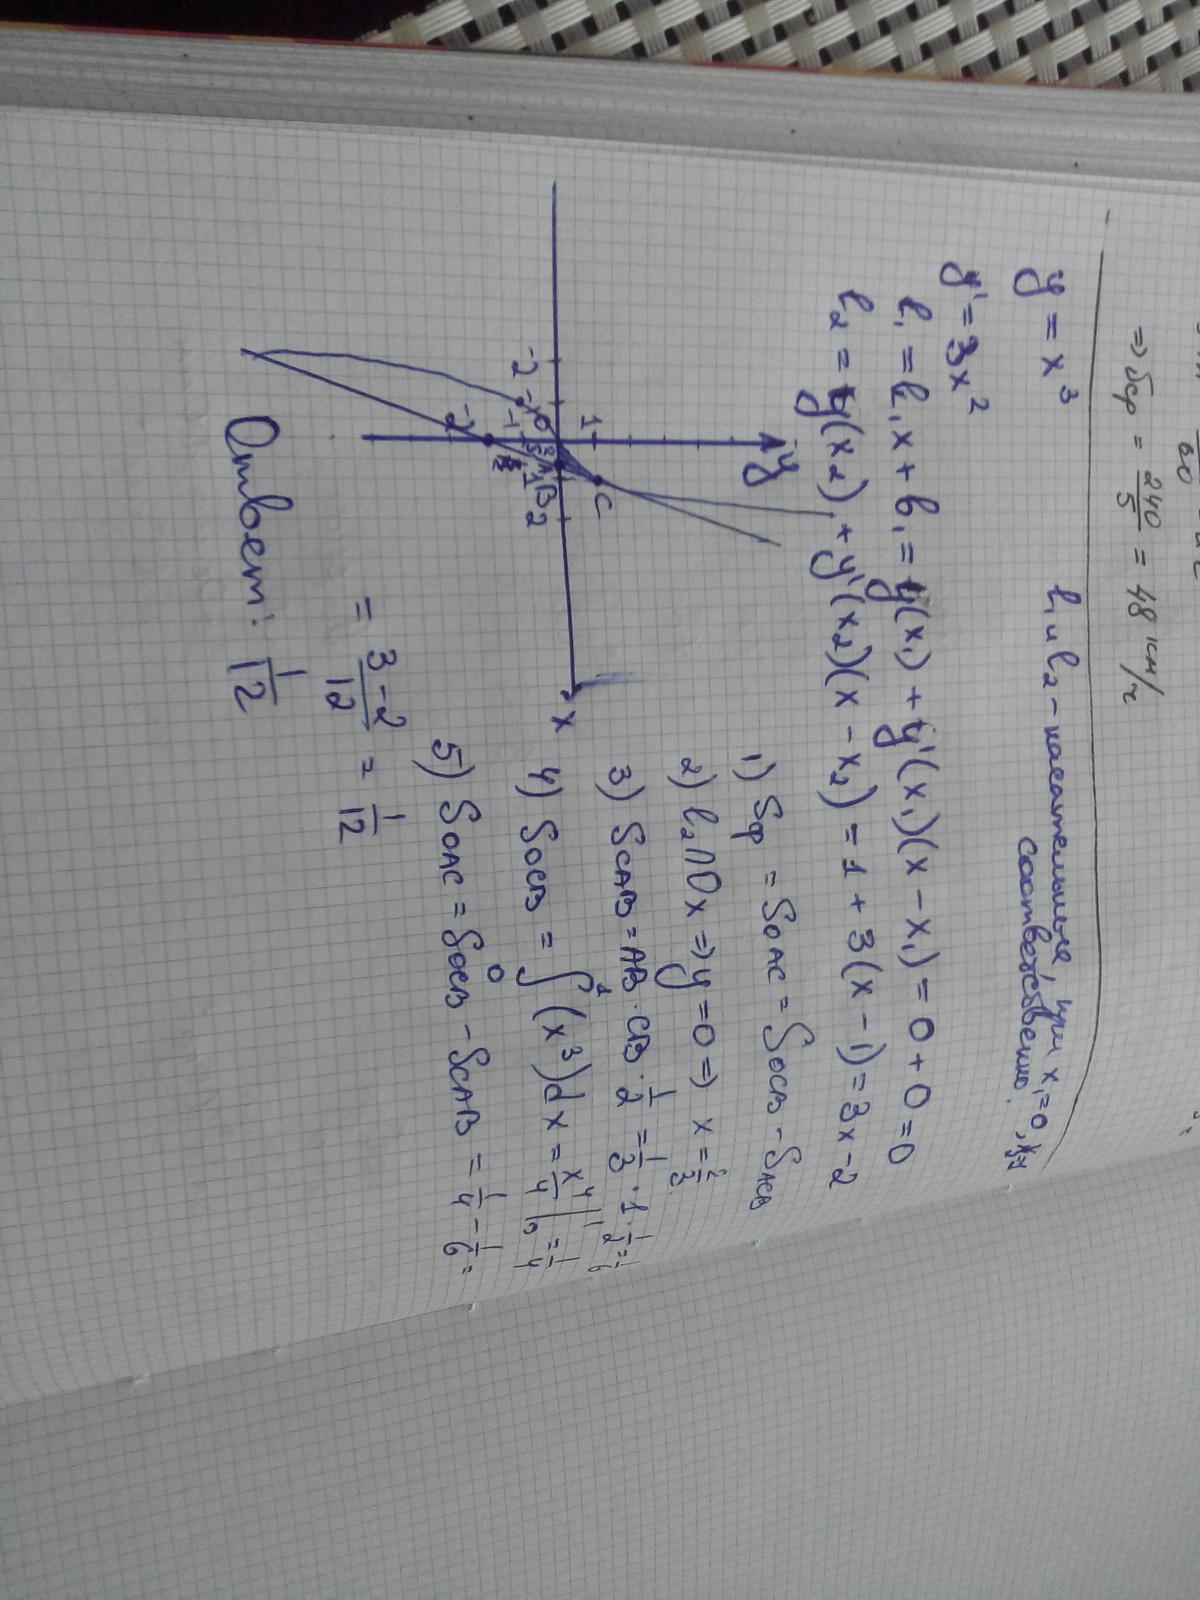 60
=> υср = 240/5 = 48 км/ч
y = x³
l₁ и l₂ - касательные, при x₁=0, x₂=1
соответственно.
y' = 3x²
l₁ = k₁x + b₁ = y(x₁) + y'(x₁)(x - x₁) = 0 + 0 = 0
l₂ = y(x₂) + y'(x₂)(x - x₂) = 1 + 3(x - 1) = 3x - 2
y
x
1
C
O
A
B
2
-2
-1
-2
1) Sф = SOAC = SOCB - SACB
2) l₂∩Ox => y = 0 => x = 2/3.
3) SCAB = AB · CB · 1/2 = 1/3 · 1 · 1/2 = 1/6
4) SOCB = ∫₀¹ (x³)dx = x⁴/4 |₀¹ = 1/4
5) SOAC = SOCB - SCAB = 1/4 - 1/6 =
= 3-2/12 = 1/12
Ответ: 1/12